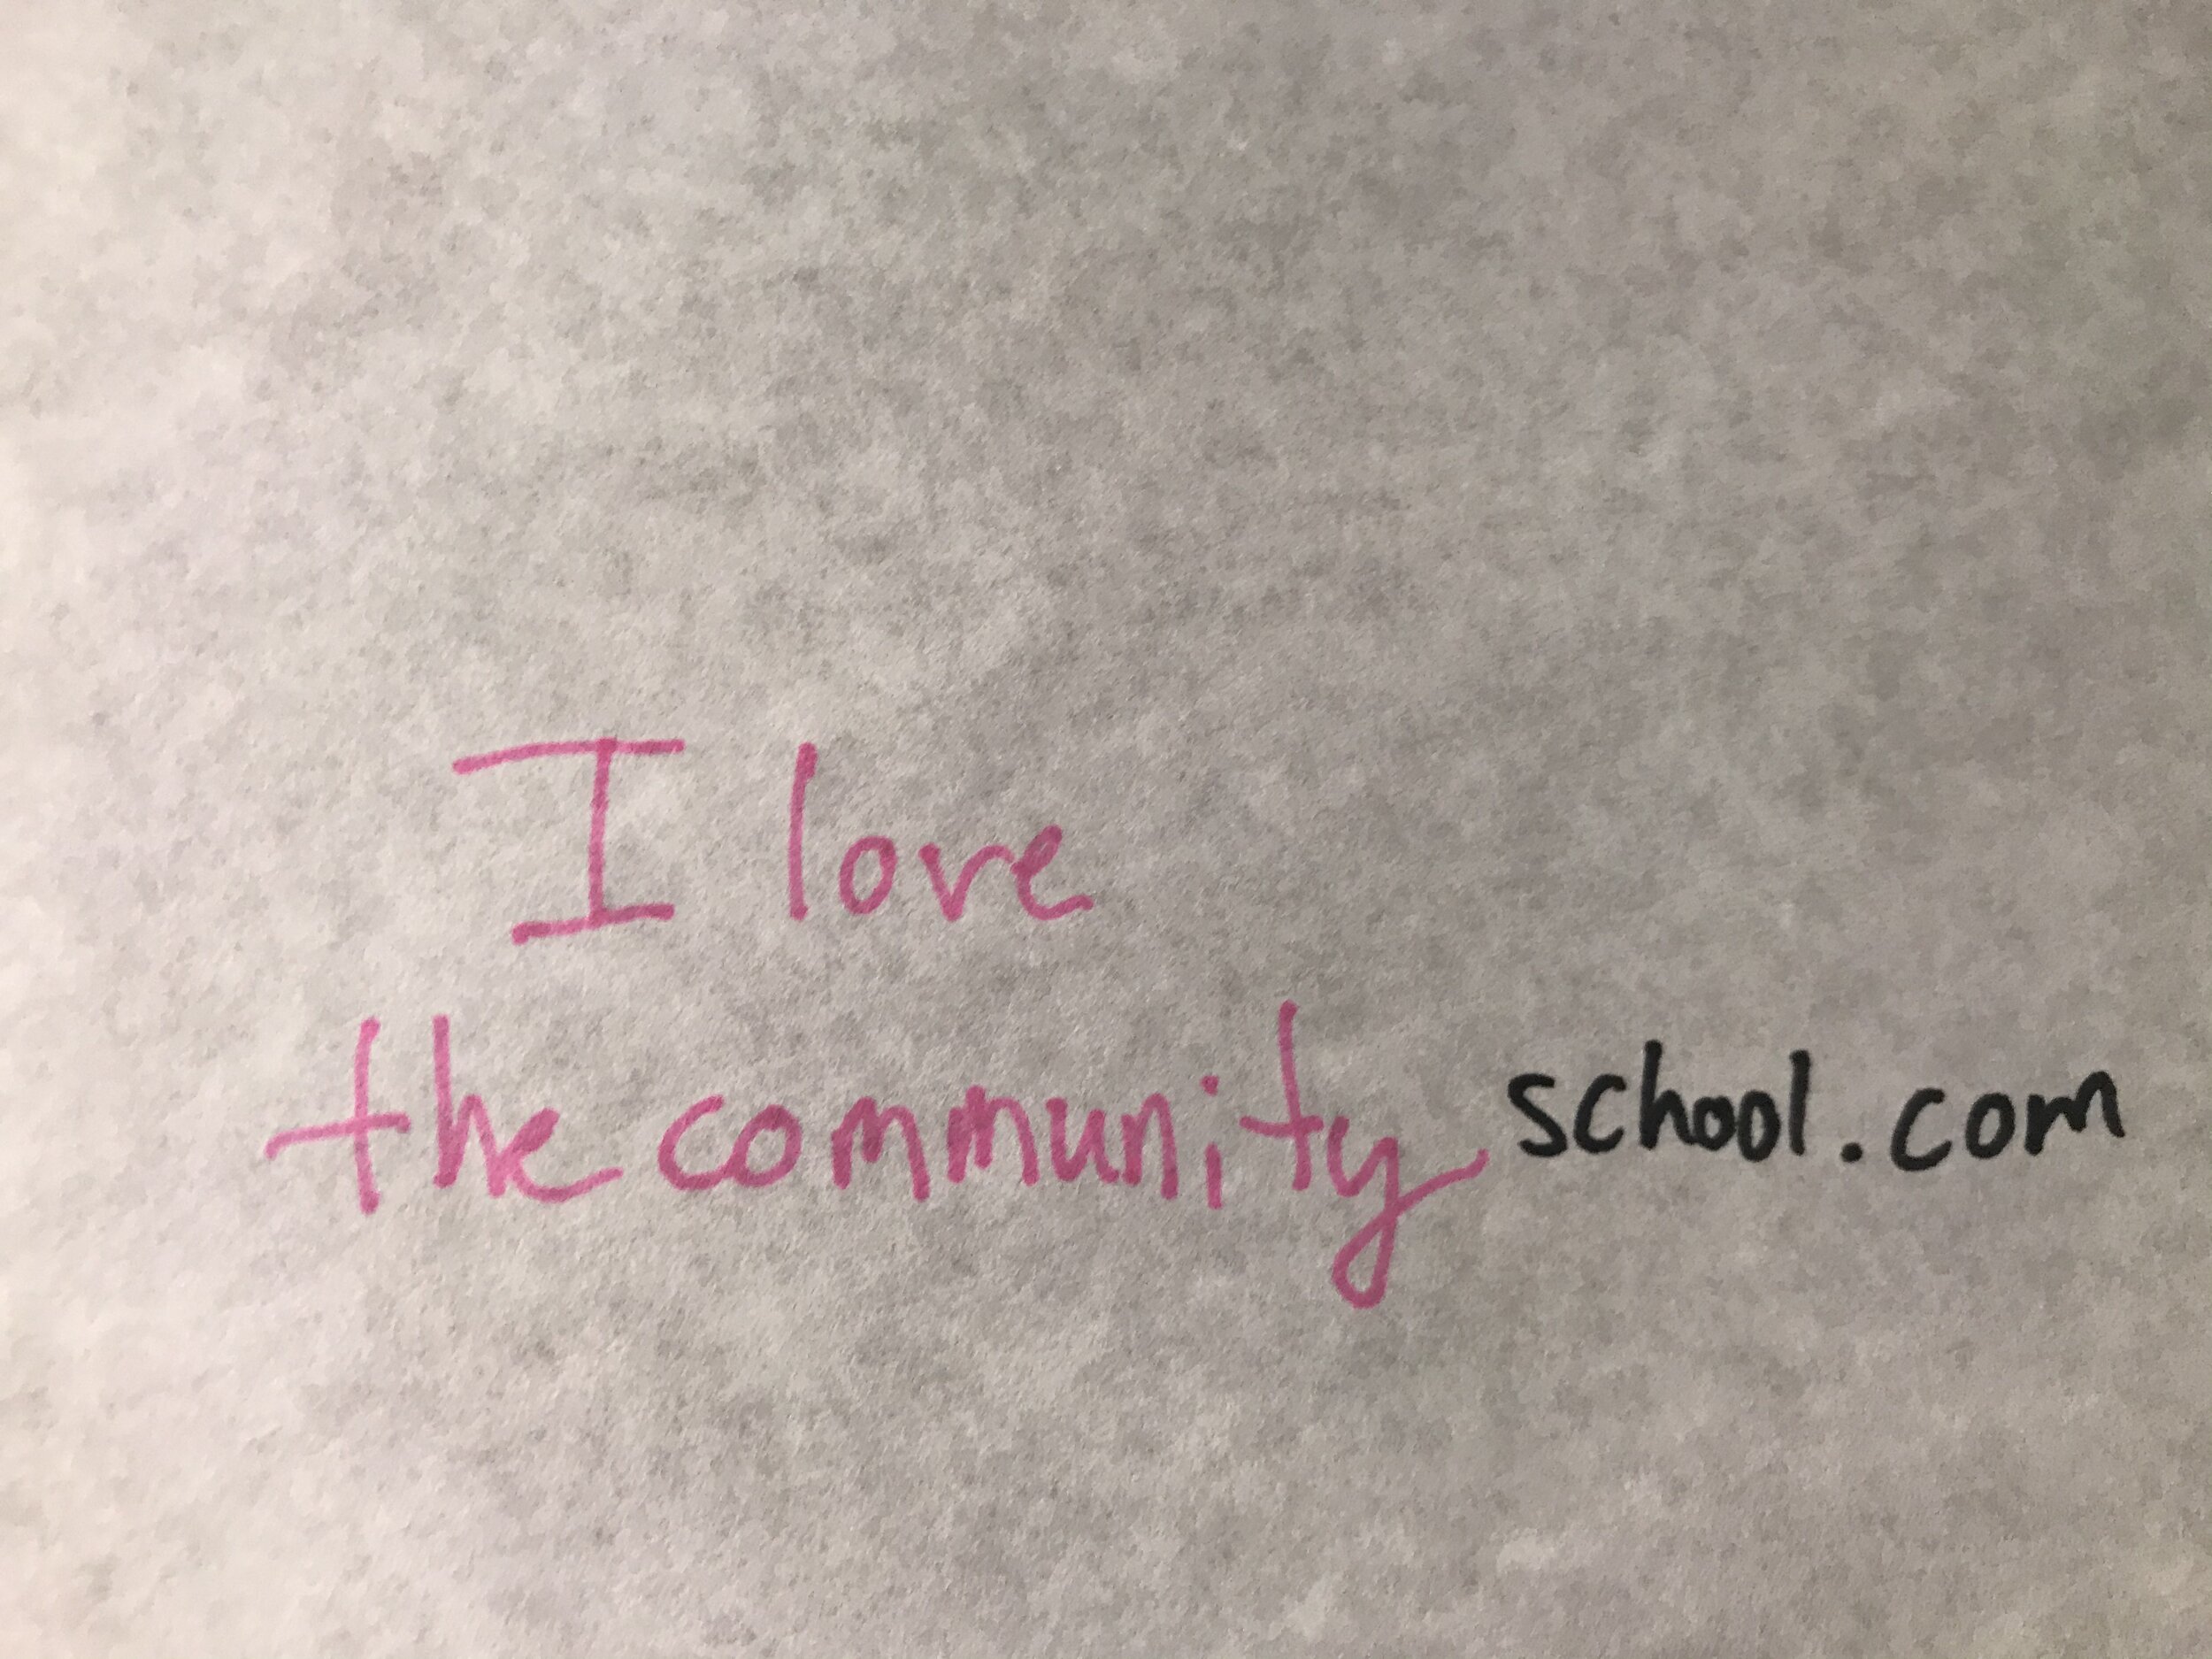 I love
the community school.com